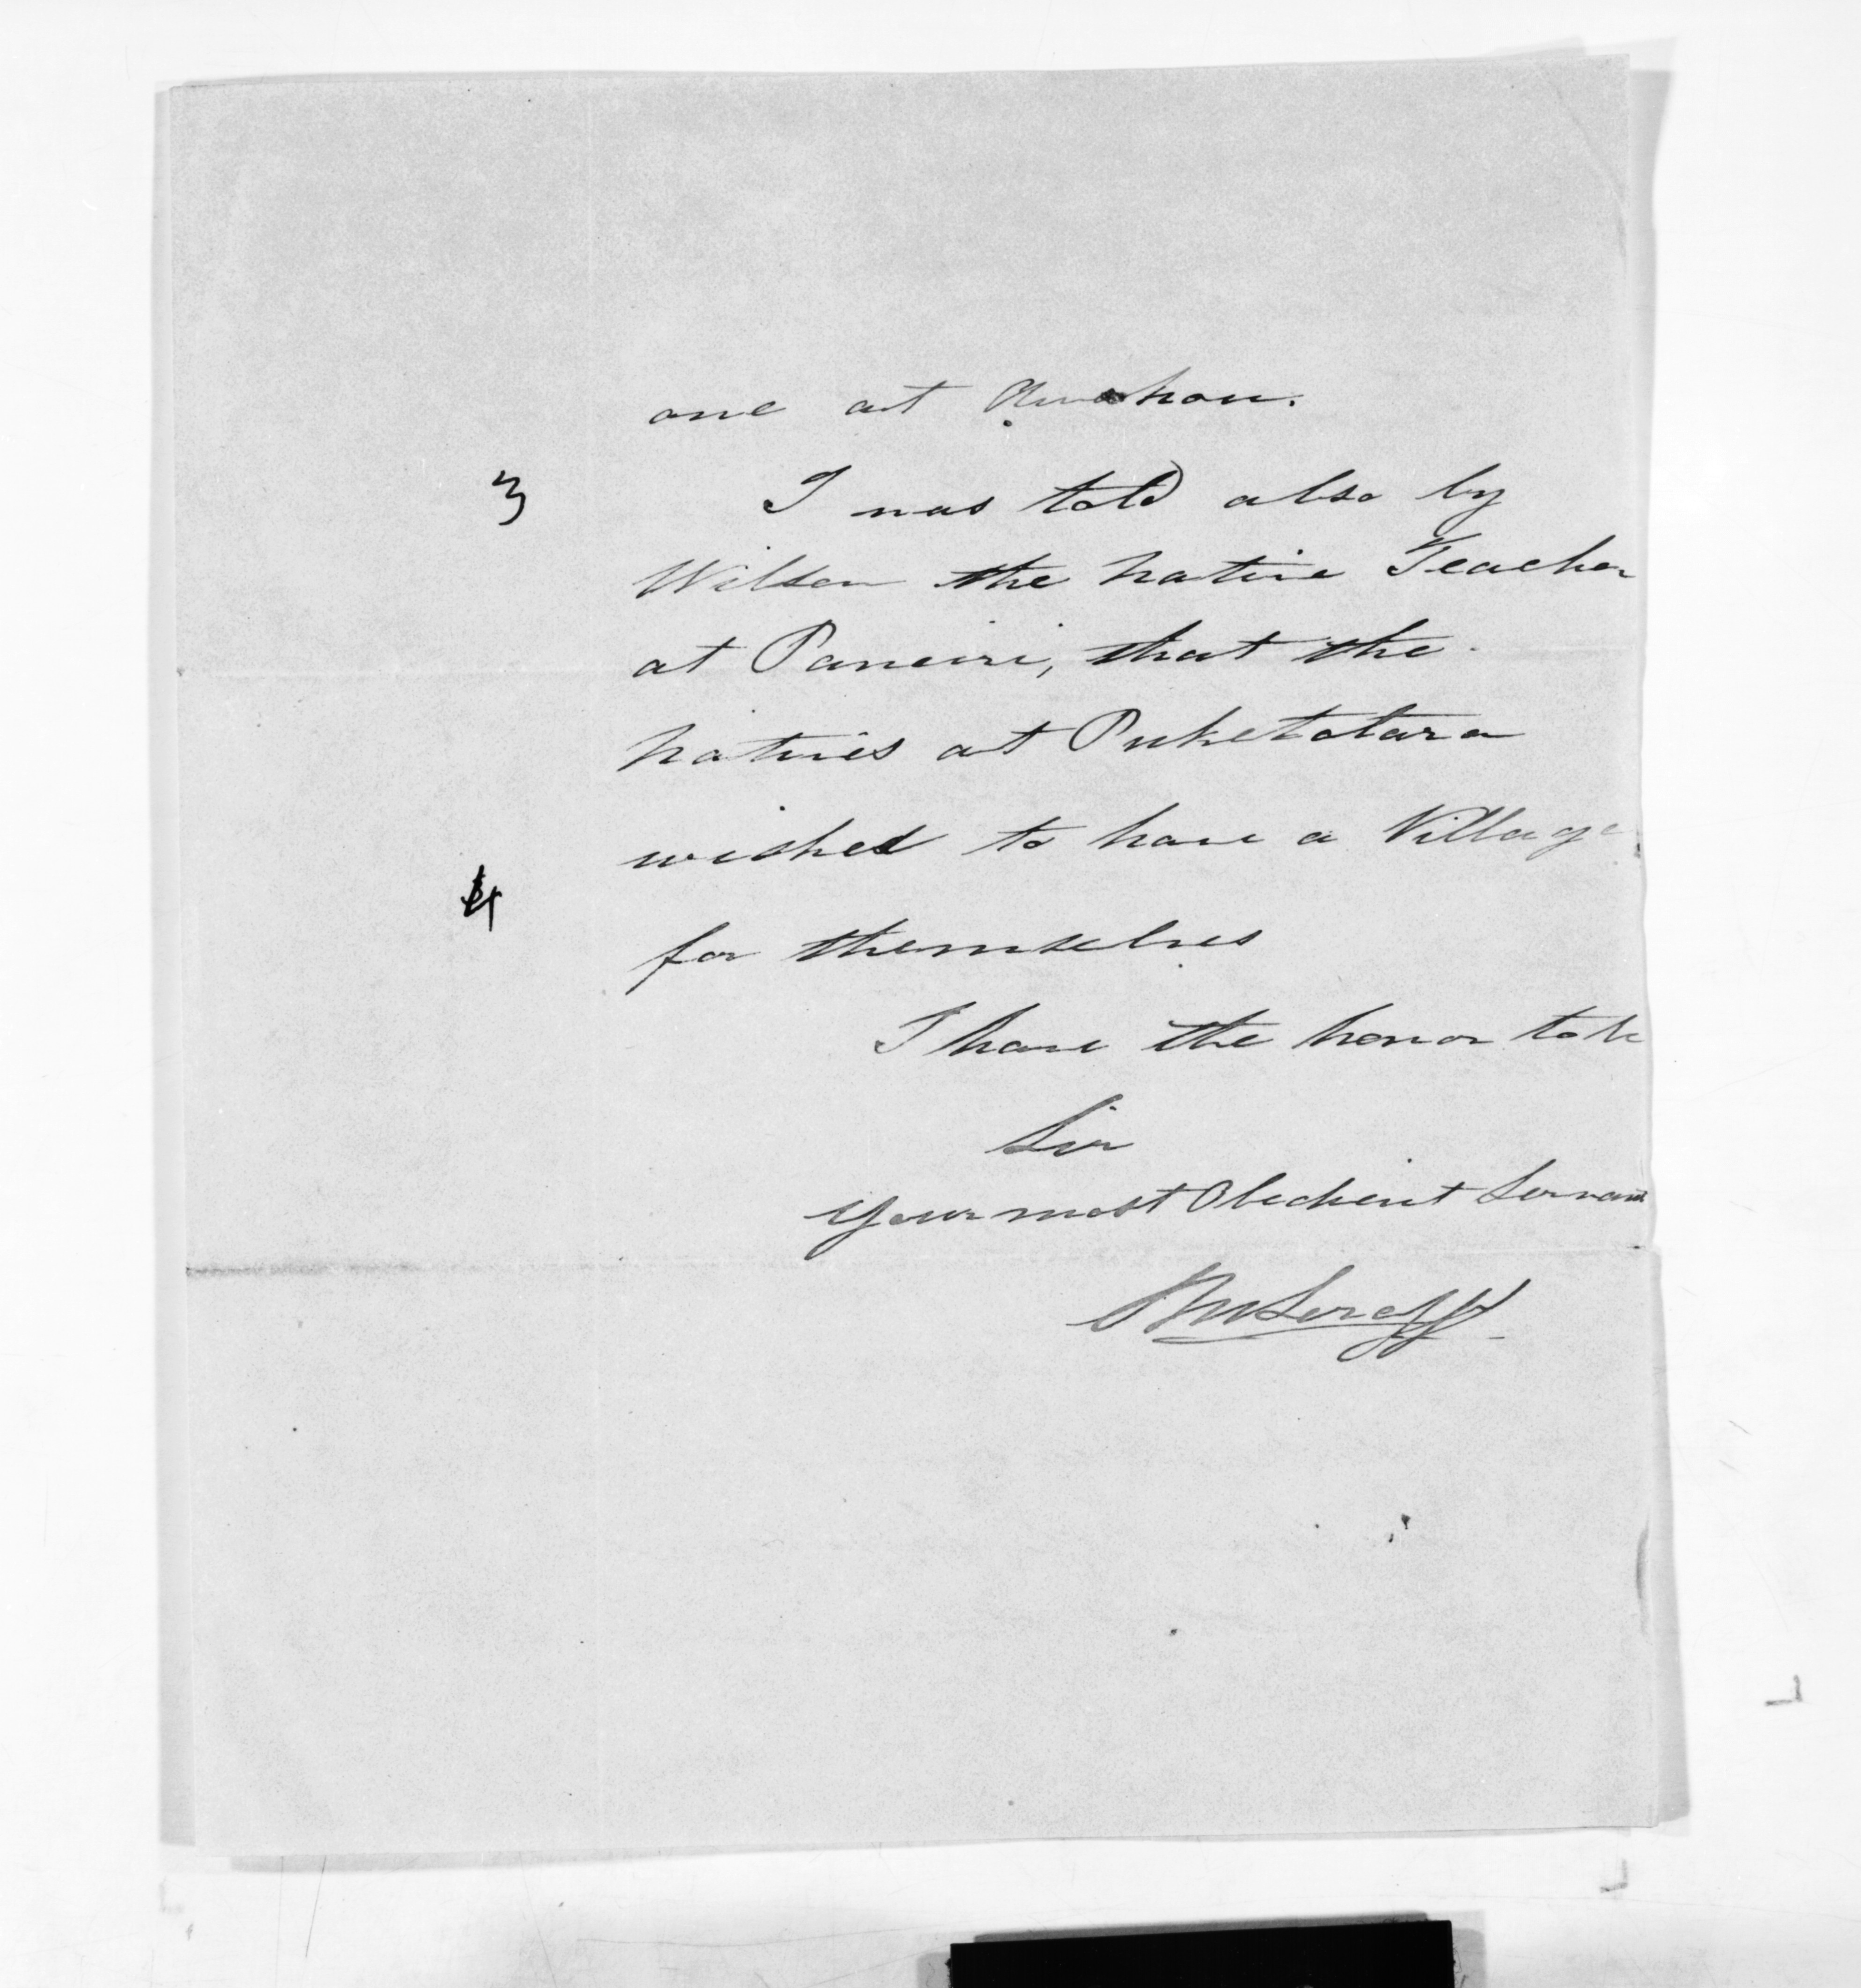 one at
3
I was told also by
Wilson the native Teacher
at Paneiri, that the
natives at Puketotara
wished to have a Village
4
for themselves
I have the honor to be
Sir
Your most Obedient Servant